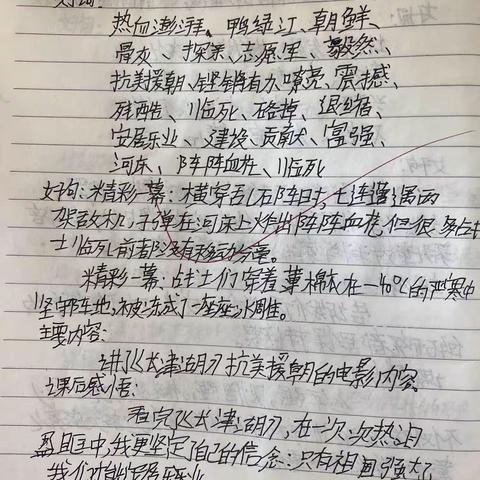 好词:
热血澎湃、鸭绿江、朝鲜、
骨灰、探亲、志愿军、毅然、
抗美援朝、铿锵有力、嘹亮、震撼、
残酷、临死、砲弹、退缩、
安居乐业、建设、贡献、富强、
河床、阵阵血花、临死
好句:精彩一幕:横穿乱石阵时,七连遭遇两
架敌机,子弹在河床上炸出阵阵血花,但很多战
士临死前都没有移动分毫。
精彩一幕:战士们穿着薄棉衣在-40℃的严寒中
坚守阵地,被冻成了一座座冰雕。
主要内容:
讲《长津湖》抗美援朝的电影内容。
课后感悟:
看完《长津湖》,在一次次热泪
盈眶中,我更坚定了自己的信念:只有祖国强大了
我们才能安居乐业